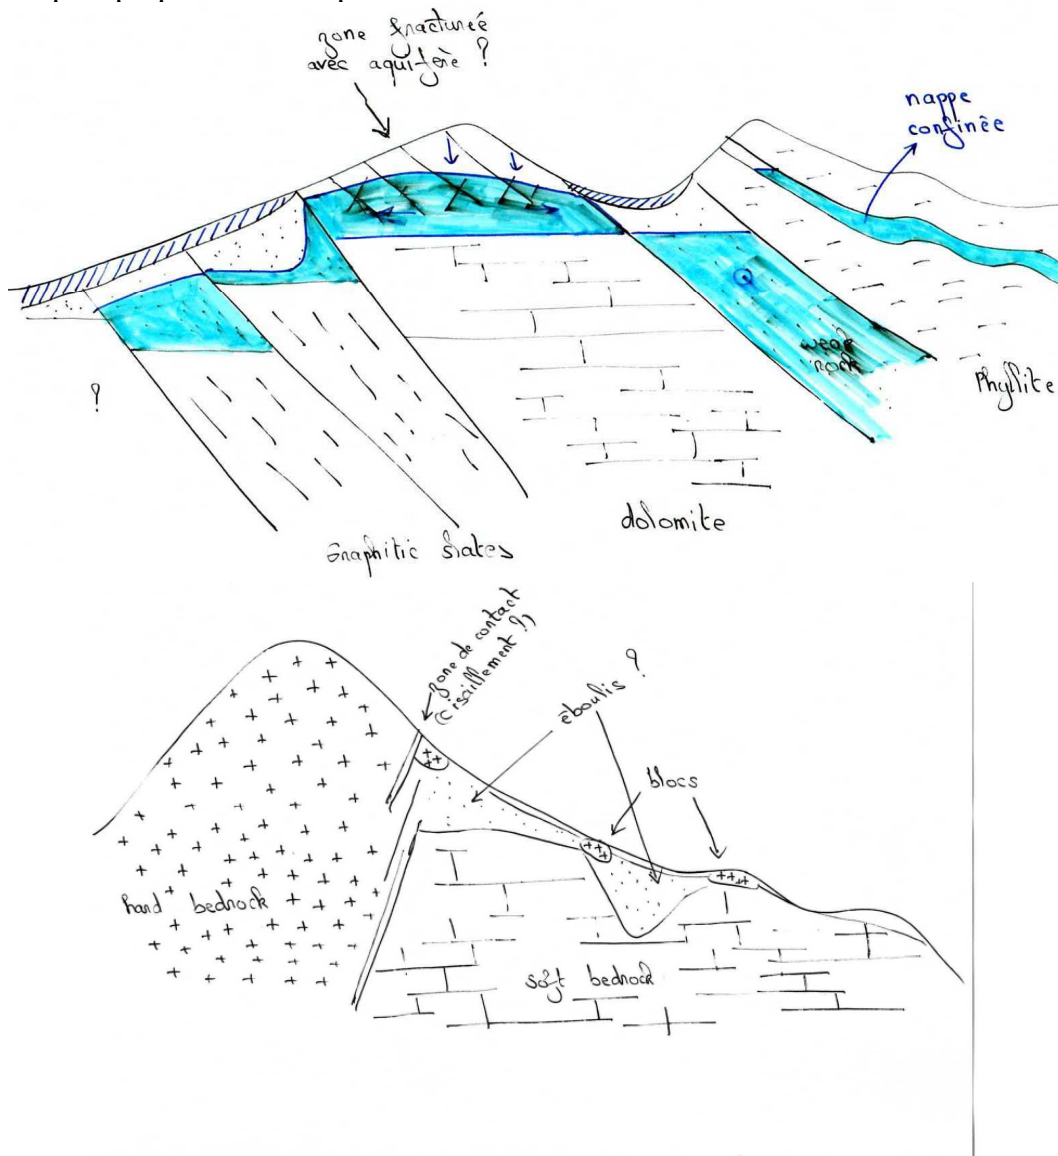 zone fracturée
avec aquifère ?
nappe
confinée
weak
rock
Phyllite
?
dolomite
Graphitic slates
zone de contact
(cisaillement ?)
éboulis ?
blocs
hard bedrock
soft bedrock